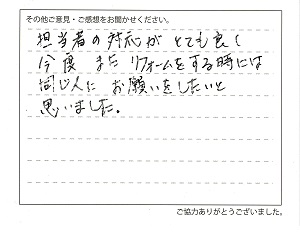 その他ご意見・ご感想をお聞かせください。
担当者の対応が とても良く
今度 また リフォームをする時には
同じ人に お願いをしたいと
思いました。
ご協力ありがとうございました。